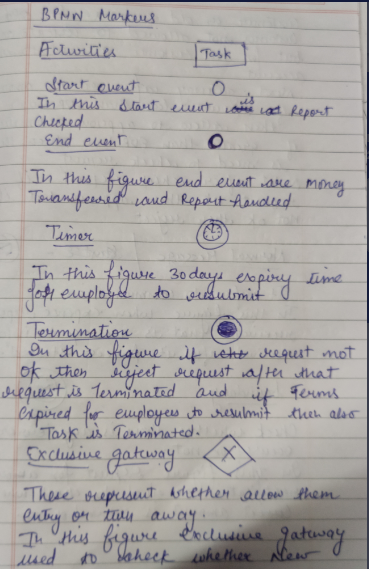 BPMN Markers
Activities Task
Start event
In this Start event is Report
Checked
End event
In this figure end event are money
Transfeered and Report handled
Timer
In this figure 30 days expiry time
for employee to resubmit
Termination
In this figure if request not
ok then reject request after that
request is Terminated and if Terms
expired for employees to resubmit then also
Task is Terminated.
Exclusive gateway X
These represent whether allow them
entry or turn away.
In this figure exclusive gateway
used to check whether New